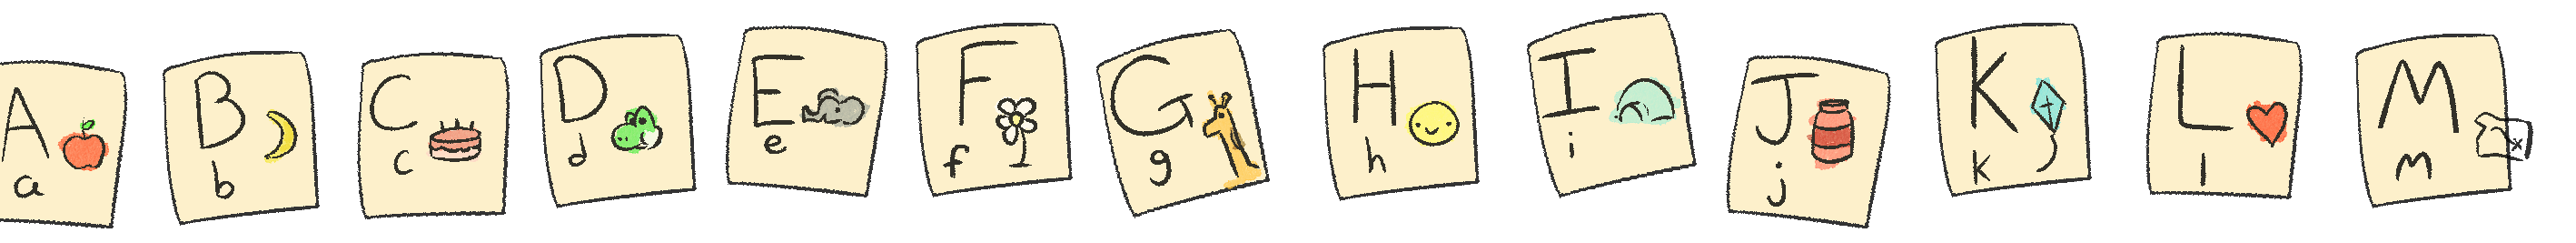 A
a
B
b
C
c
D
d
E
e
F
f
G
g
H
h
I
i
J
j
K
k
L
l
M
m